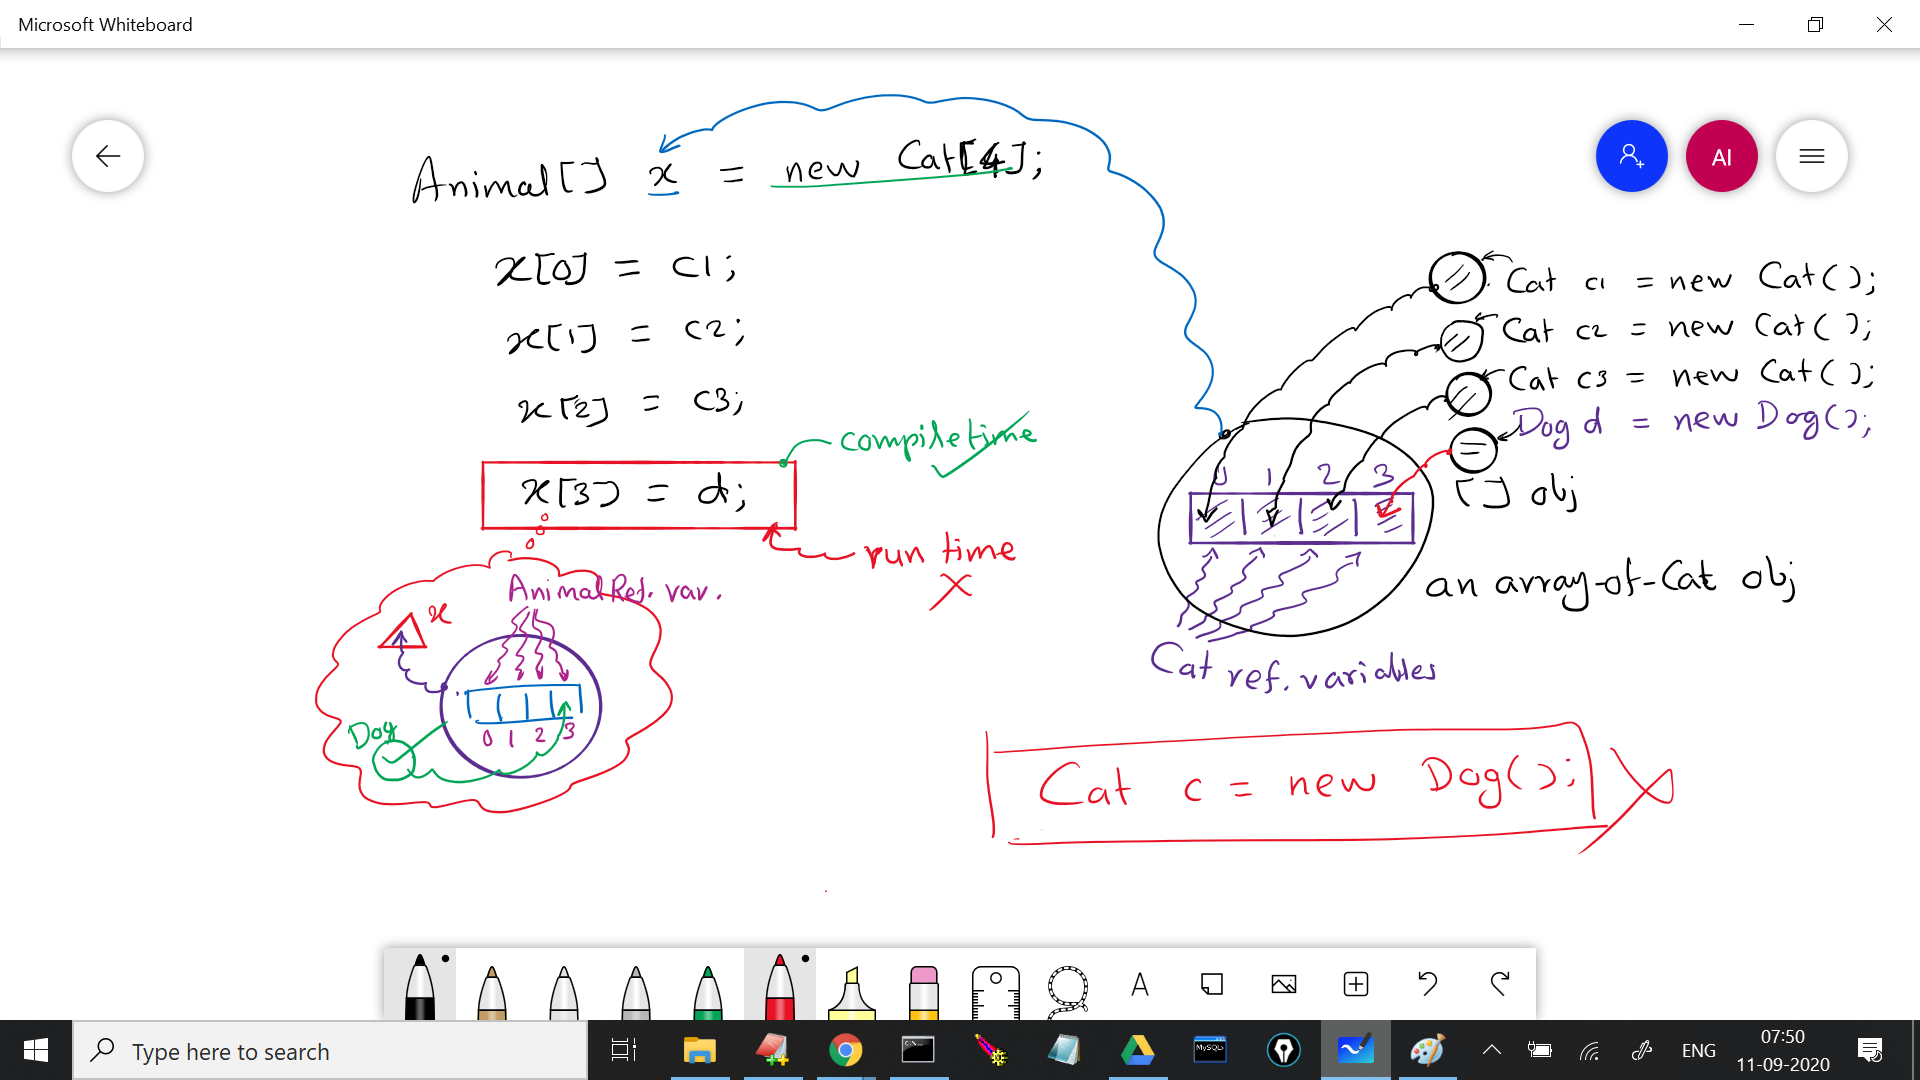 Microsoft Whiteboard
AI
Animal[] x = new Cat[4];
x[0] = c1;
x[1] = c2;
x[2] = c3;
compiletime
x[3] = d;
run time
Animal Ref. var.
x
Dog
0 1 2 3
Cat c1 = new Cat();
Cat c2 = new Cat();
Cat c3 = new Cat();
Dog d = new Dog();
0 1 2 3
[] obj
an array-of-Cat obj
Cat ref. variables
Cat c = new Dog();
A
Type here to search
C:\_
MySQL
ENG
07:50
11-09-2020